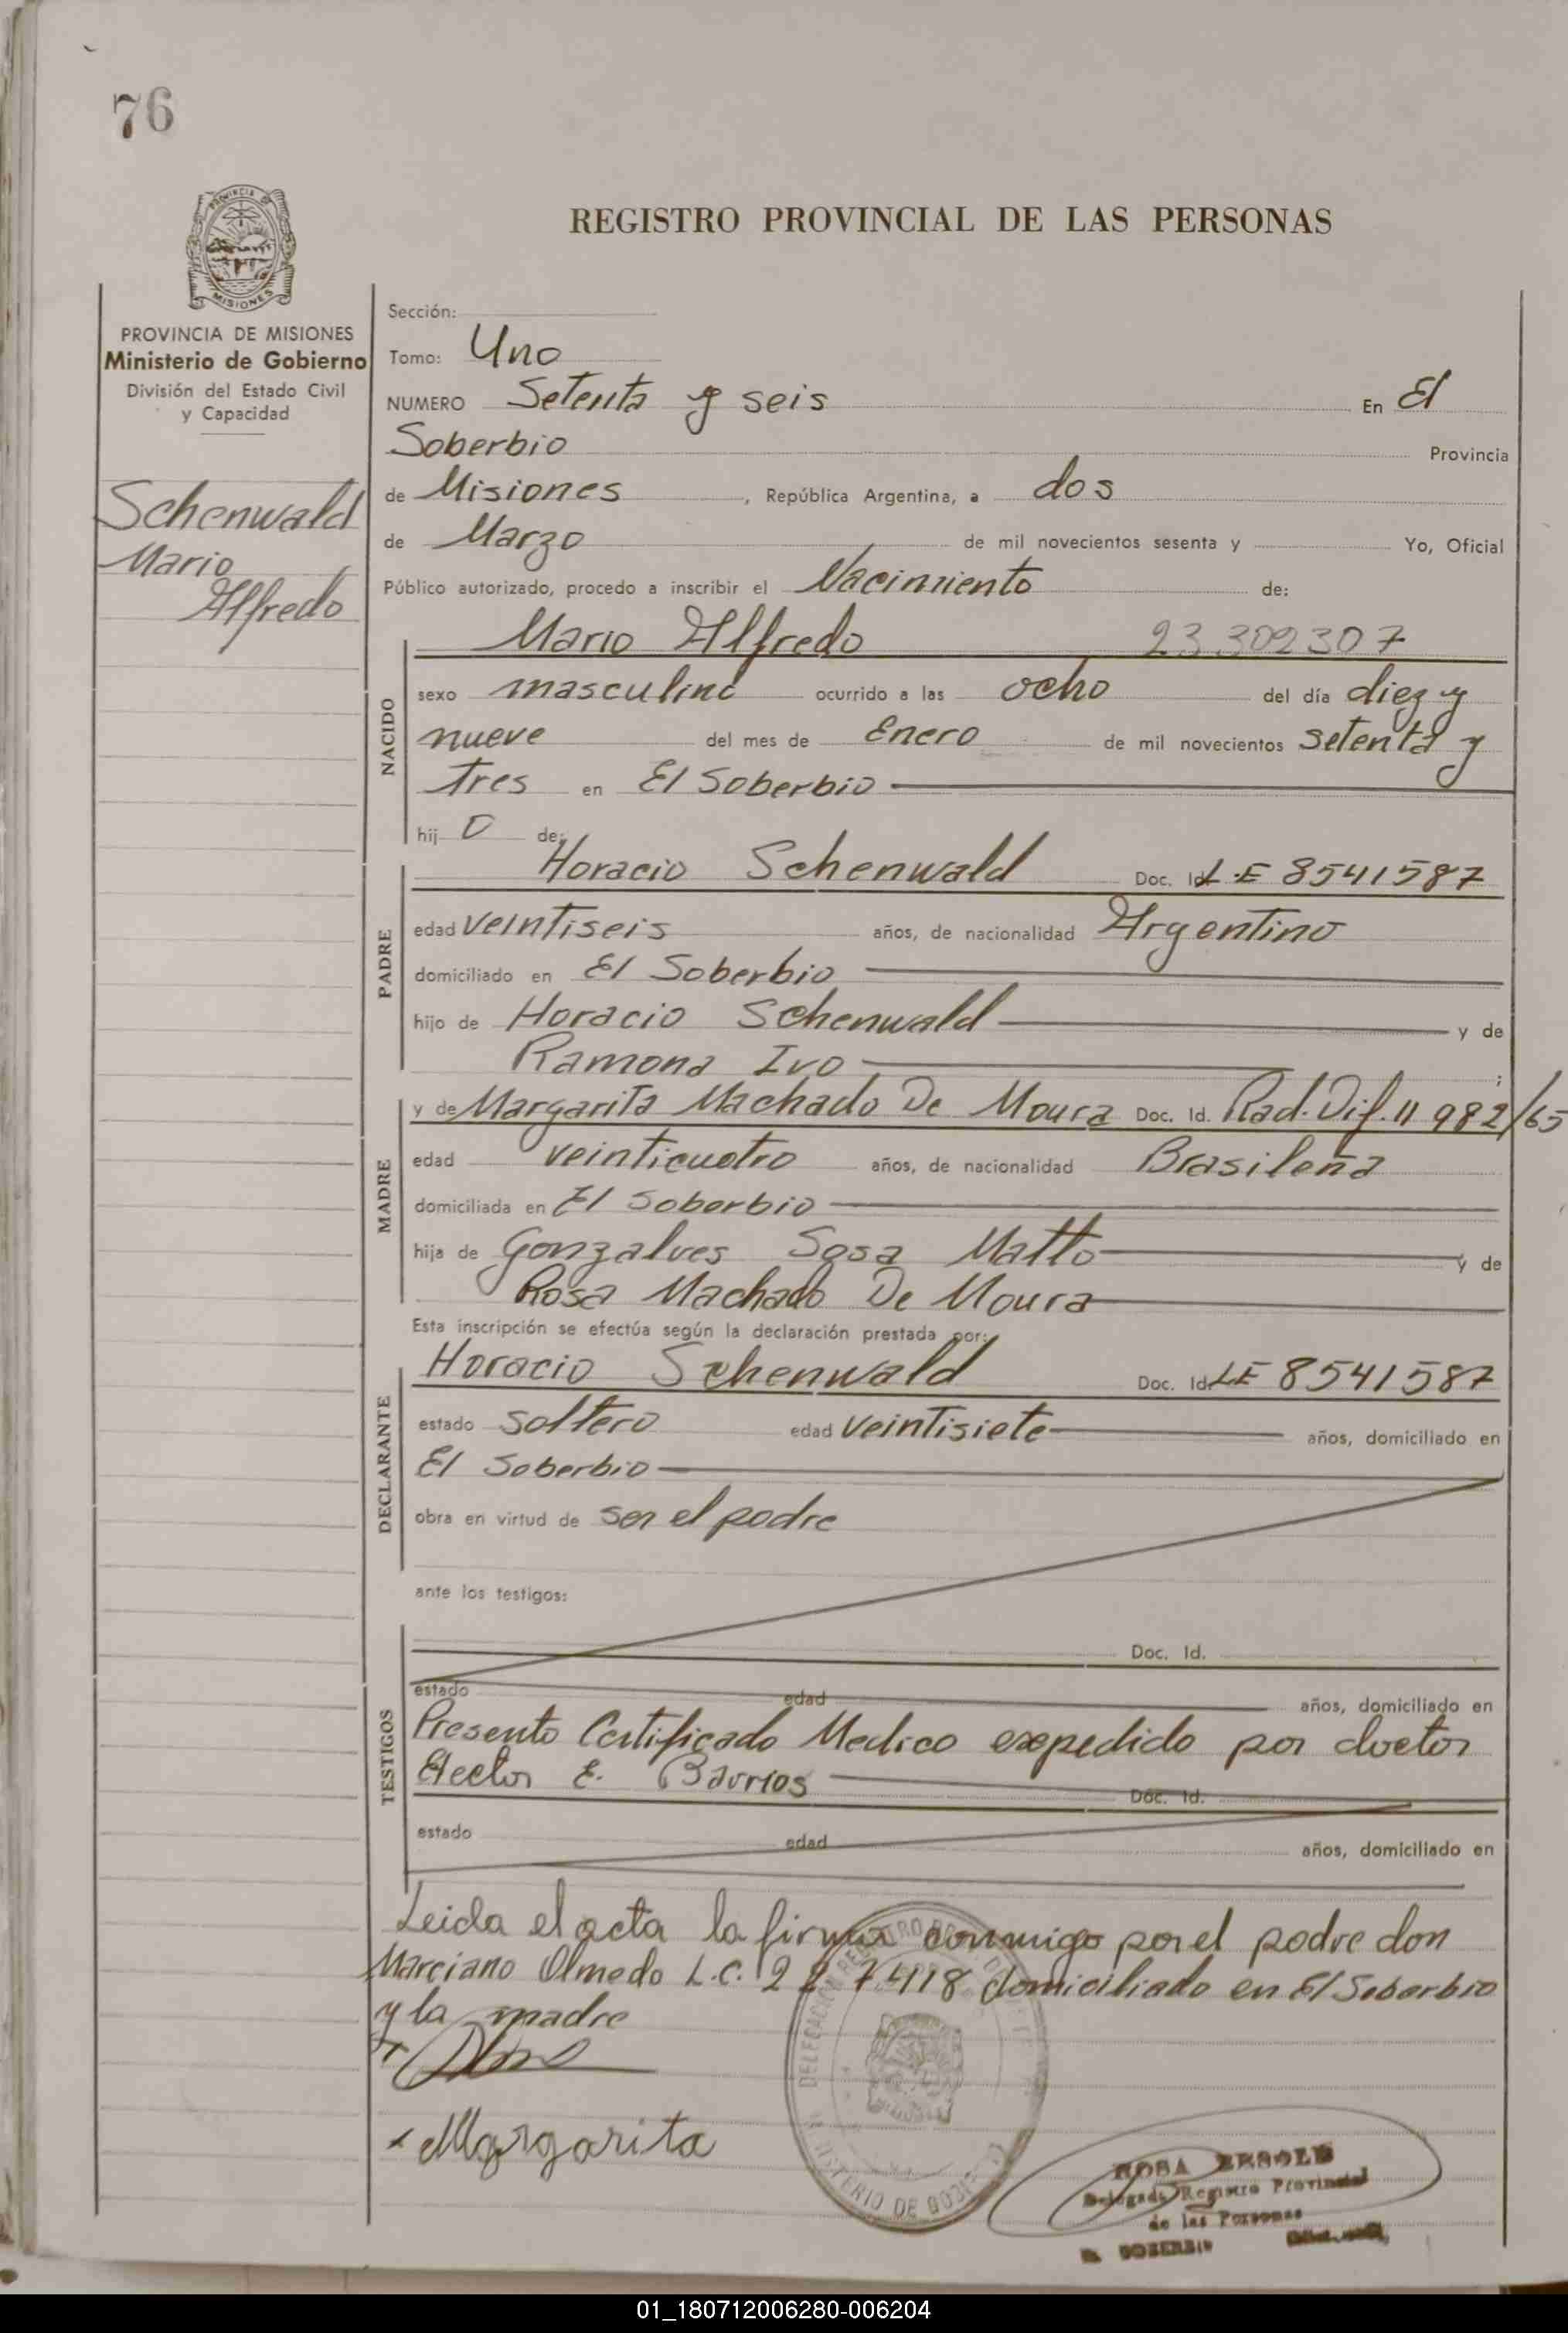 76
PROVINCIA DE
MISIONES
REGISTRO PROVINCIAL DE LAS PERSONAS
PROVINCIA DE MISIONES
Ministerio de Gobierno
División del Estado Civil
y Capacidad
Schenwald
Mario
Alfredo
Sección:
Tomo: Uno
NUMERO Setenta y seis En El
Soberbio Provincia
de Misiones, República Argentina, a dos
de Marzo de mil novecientos sesenta y Yo, Oficial
Público autorizado, procedo a inscribir el Nacimiento de:
Mario Alfredo 23 302307
NACIDO
sexo masculino ocurrido a las ocho del día diez y
nueve del mes de Enero de mil novecientos setenta y
tres en El Soberbio
hij o de:
PADRE
Horacio Schenwald Doc. Id. L.E 8541587
edad veintiseis años, de nacionalidad Argentino
domiciliado en El Soberbio
hijo de Horacio Schenwald y de
Ramona Ivo ;
MADRE
y de Margarita Machado De Moura Doc. Id. Rad. Dif. 11 982/65
edad veinticuatro años, de nacionalidad Brasileña
domiciliada en El Soberbio
hija de Gonzalves Sosa Matto y de
Rosa Machado De Moura
Esta inscripción se efectúa según la declaración prestada por:
DECLARANTE
Horacio Schenwald Doc. Id. LE 8541587
estado soltero edad veintisiete años, domiciliado en
El Soberbio
obra en virtud de ser el padre
ante los testigos:
TESTIGOS
Doc. Id.
estado edad años, domiciliado en
Presento Certificado Medico expedido por doctor
E. Barrios Doc. Id.
estado edad años, domiciliado en
Leida el acta la firma conmigo por el padre don
Marciano Olmedo L.C. 2 2 7 418 domiciliado en El Soberbio
y la madre
x
x Margarita
DELEGACION REGISTRO
MINISTERIO DE GOBIERNO
ROSA
Delegada Registro Provincial
de las Personas
EL SOBERBIO
01_180712006280-006204